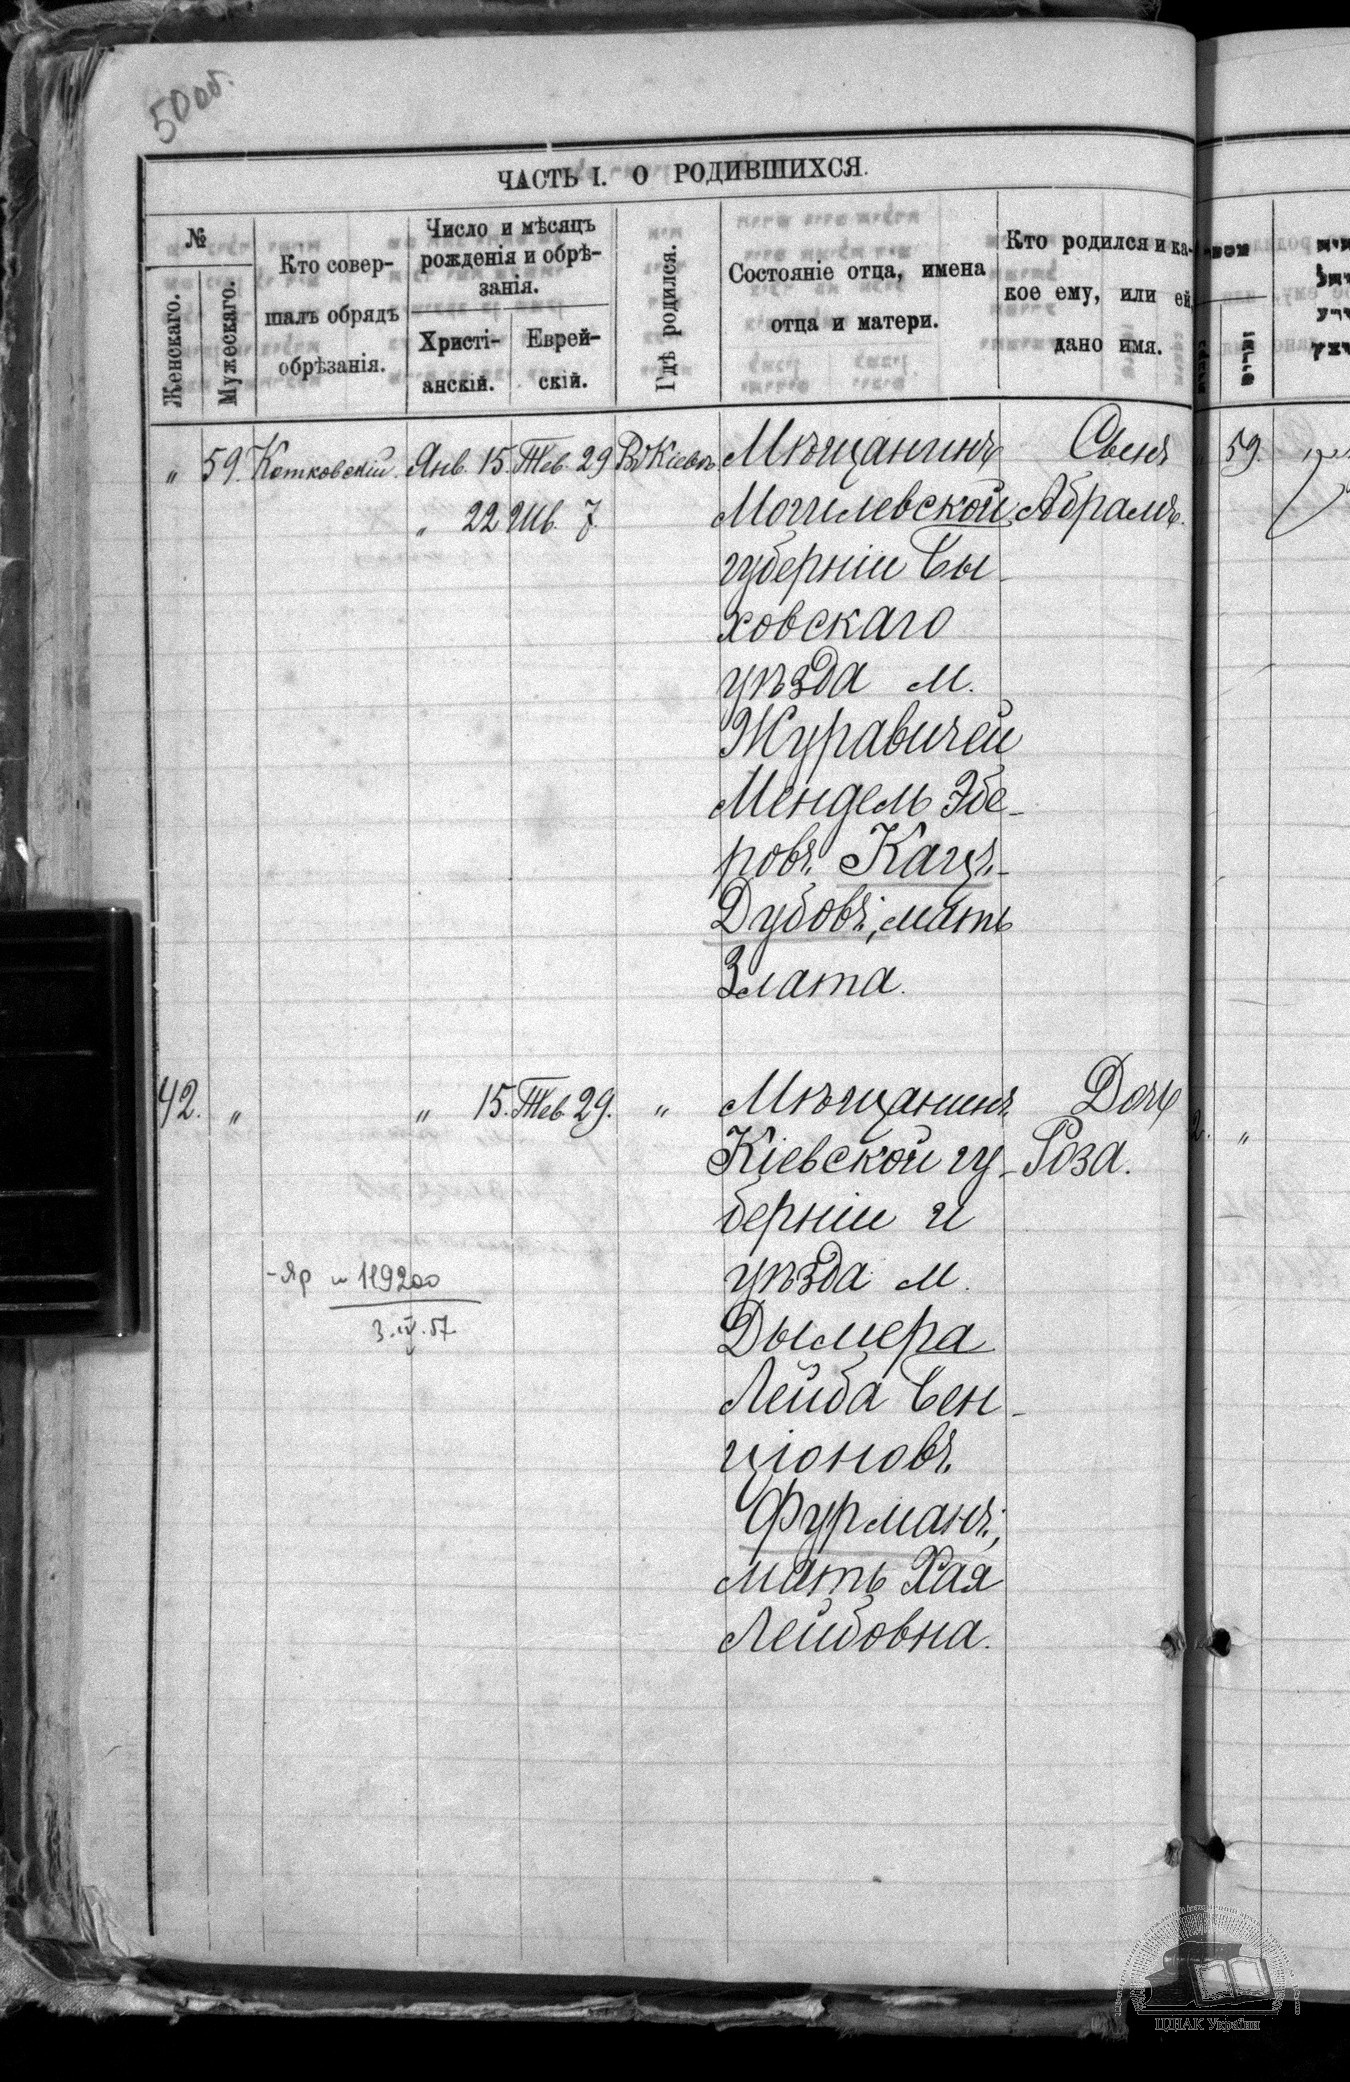 50 об.
ЧАСТЬ I. О РОДИВШИХСЯ.
№
Женскаго.
Мужескаго.
Кто совер-
шалъ обрядъ
обрѣзанія.
Число и мѣсяцъ
рожденія и обрѣ-
занія.
Христі-
анскій.
Еврей-
скій.
Гдѣ родился.
Состояніе отца, имена
отца и матери.
Кто родился и ка-
кое ему, или ей,
дано имя.
„ 59. Котковскій. Янв. 15. Тев. 29 Въ Кіевѣ Мѣщанинъ Сынъ 59.
„ 22 Шв. 7 Могилевской Абрамъ.
губерніи Бы-
ховскаго
уѣзда м.
Журавичей
Мендель
ровъ Кацъ-
Дубовъ, мать
Злата.
42. „ „ 15. Тев. 29. „ Мѣщанинъ Дочь 2. „
Кіевской гу- Роза.
берніи и
уѣзда м.
Дымера
Лейба Бен-
ціоновъ
Фурманъ,
мать Хая
Лейбовна.
119200
3.IV.57.
ЦДІАК України